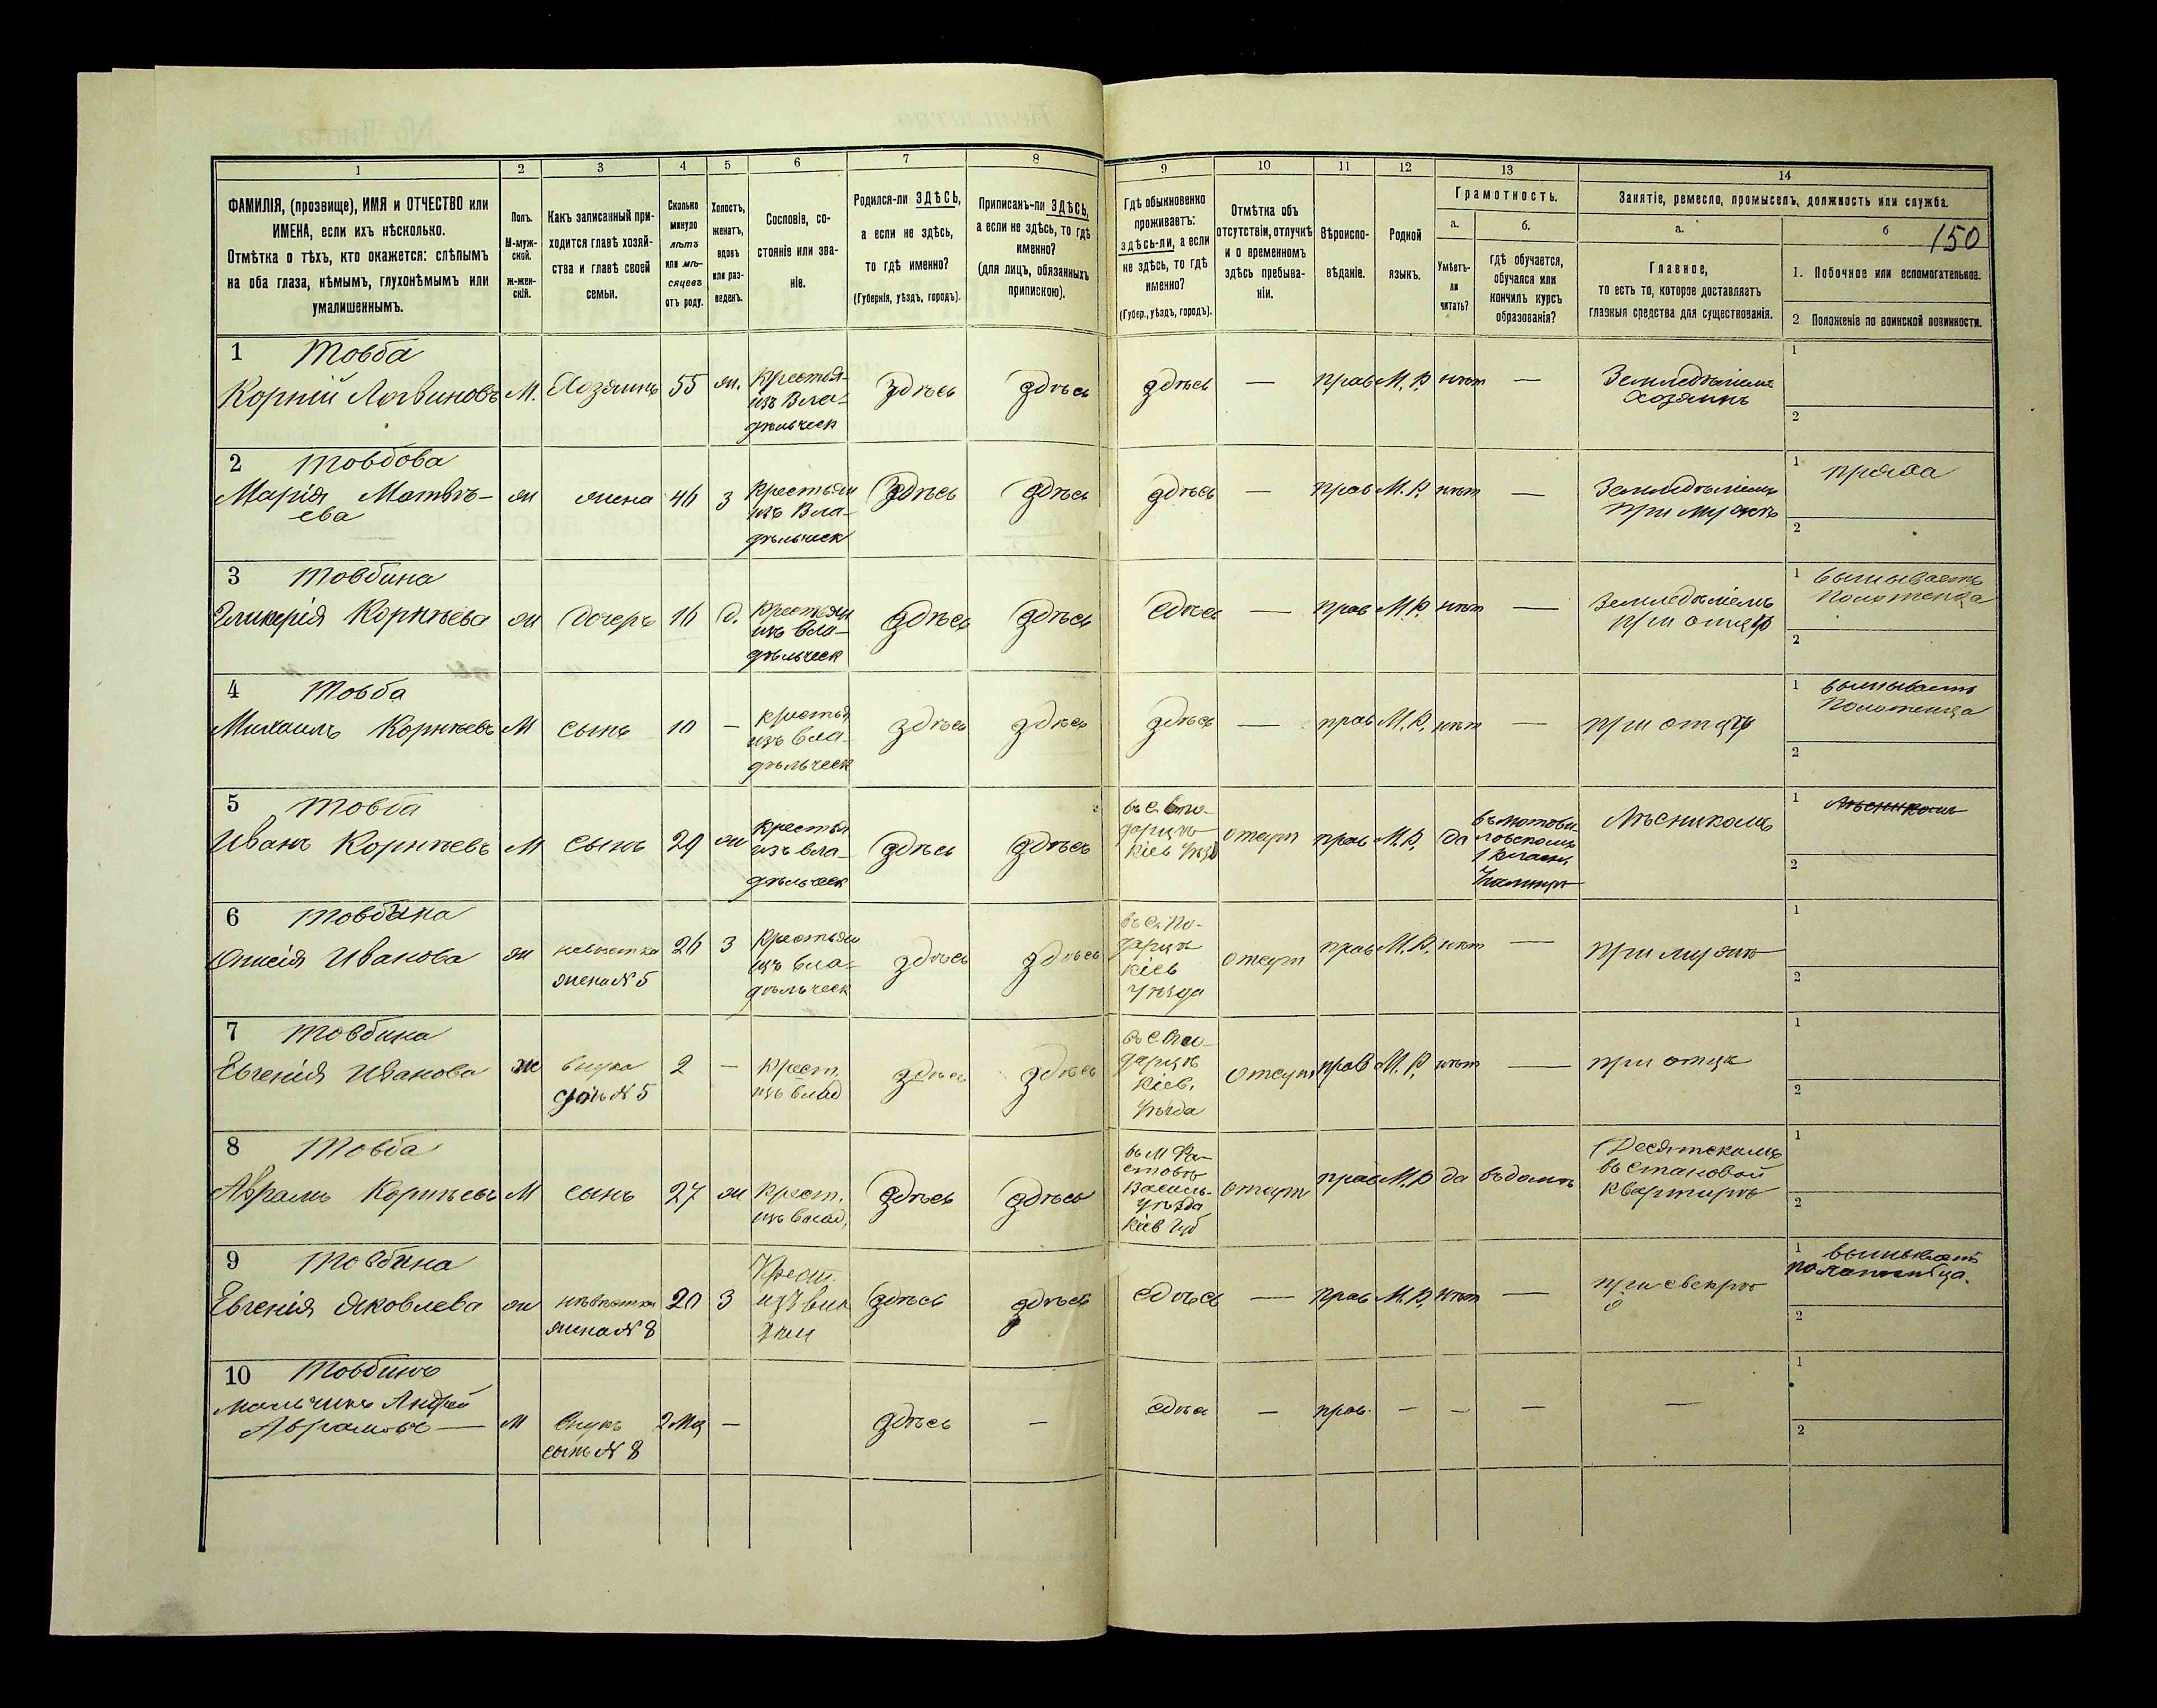 1 2 3 4 5 6 7 8 9 10 11 12 13 14
ФАМИЛІЯ, (прозвище), ИМЯ и ОТЧЕСТВО или
ИМЕНА, если ихъ нѣсколько.
Отмѣтка о тѣхъ, кто окажется: слѣпымъ
на оба глаза, нѣмымъ, глухонѣмымъ или
умалишеннымъ.
Полъ.
М-муж-
ской.
Ж-жен-
скій.
Какъ записанный при-
ходится главѣ хозяй-
ства и главѣ своей
семьи.
Сколько
минуло
лѣтъ
или мѣ-
сяцевъ
отъ роду.
Холостъ,
женатъ,
вдовъ
или раз-
веденъ.
Сословіе, со-
стояніе или зва-
ніе.
Родился-ли ЗДѢСЬ,
а если не здѣсь,
то гдѣ именно?
(Губернія, уѣздъ, городъ).
Приписанъ-ли ЗДѢСЬ,
а если не здѣсь, то гдѣ
именно?
(для лицъ, обязанныхъ
припискою).
Гдѣ обыкновенно
проживаетъ:
здѣсь-ли, а если
не здѣсь, то гдѣ
именно?
(Губер., уѣздъ, городъ).
Отмѣтка объ
отсутствіи, отлучкѣ
и о временномъ
здѣсь пребыва-
ніи.
Вѣроиспо-
вѣданіе.
Родной
языкъ.
Грамотность.
а.
Умѣетъ-
ли
читать?
б.
гдѣ обучается,
обучался или
кончилъ курсъ
образованія?
Занятіе, ремесло, промыселъ, должность или служба.
а.
Главное,
то есть то, которое доставляетъ
главныя средства для существованія.
б 150
1. Побочное или вспомогательное.
2 Положеніе по воинской повинности.
1 Товба
Корній Логвиновъ
М.
Хозяинъ
55
ж.
Крестья-
изъ Вла-
дѣльческ
Здѣсь
здѣсь
здѣсь
—
прав
М. Р.
нѣт
—
Земледѣліемъ
хозяинъ
1
2
2 Товбова
Марія Матвѣ-
ева
ж
жена
46
з
Крестьян
изъ Вла-
дѣльческ
Здѣсь
здѣсь
здѣсь
—
прав
М. Р.
нѣт
—
Земледѣліемъ
при мужѣ
1 пряжа
2
3 Товбина
Гликерія Корнѣева
ж
дочерь
16
д.
Крестьян
изъ вла-
дѣльческ
здѣсь
здѣсь
сдѣсь
—
прав
М. Р.
нѣт
—
Земледѣліемъ
при отцѣ
1 вышиваетъ
полотенца
2
4 Товба
Михаилъ Корнѣевъ
М
сынъ
10
—
крестья
изъ вла-
дѣльческ
здѣсь
здѣсь
здѣсь
—
прав
М. Р.
нѣт
—
при отцѣ
1 вышиваетъ
полотенца
2
5 Товба
Иванъ Корнѣевъ
М
сынъ
29
ж
Крестья
изъ вла-
дѣльческ
здѣсь
здѣсь
Кіев Уѣзд
отсут
прав
М. Р.
да
въ мотови-
ловскомъ
1 класн
Лѣсникомъ
1 Лѣсникомъ
2
6 Товбина
Онисія Иванова
ж
невѣстка
жена № 5
26
з
Крестьян
изъ вла-
дѣльческ
здѣсь
здѣсь
Кіев
Уѣзда
отсут
прав
М. Р.
нѣт
—
при мужѣ
1
2
7 Товбина
Евгенія Иванова
ж
внука
дочь № 5
2
—
Крест.
изъ влад
здѣсь
здѣсь
Кіев.
Уѣзда
отсут
прав
М. Р.
нѣт
—
при отцѣ
1
2
8 Товба
Аврамъ Корнѣевъ
М
сынъ
27
ж
Крест.
изъ влад.
здѣсь
здѣсь
въ м Фа-
стовѣ
Василь-
Уѣзда
Кіев Губ
отсут
прав
М. Р
да
въ домѣ
Десятскимъ
въ становой
квартирѣ
1
2
9 Товбина
Евгенія Яковлева
ж
невѣстка
жена № 8
20
з
Крест.
изъ вла
здѣсь
здѣсь
сдѣсь
—
прав
М. Р.
нѣт
—
при свекрѣ
1 вышиваетъ
полотенца.
2
10 Товбинъ
мальчикъ Андрей
Аврамовъ —
М
внукъ
сынъ № 8
2 мѣ
—
здѣсь
—
сдѣсь
—
прав.
—
—
—
—
1
2